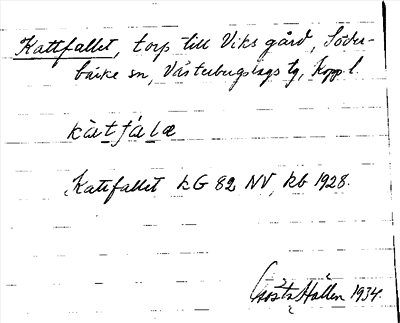 Kattfallet, torp till Viks gård, Söder-
bärke sn, Västerbergslags tg, Kopp. l.
kàtfála
Kattfallet LG 82 NV, kb 1928.
Gösta Hallen 1934.